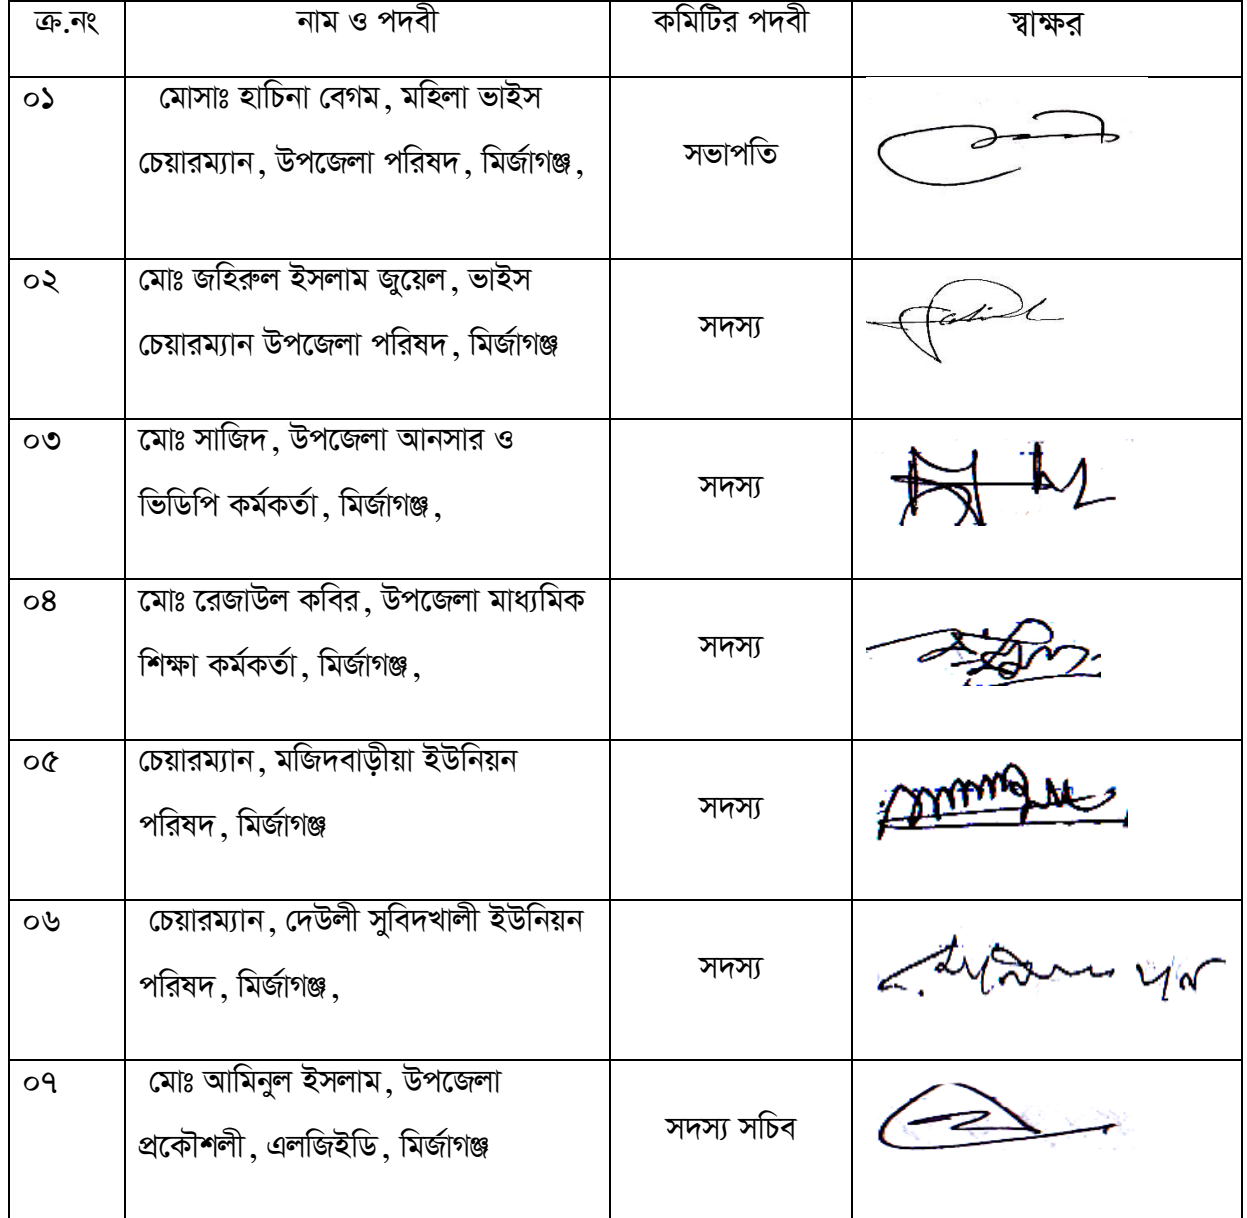 ক্র.নং নাম ও পদবী কমিটির পদবী স্বাক্ষর
০১ মোসাঃ হাচিনা বেগম, মহিলা ভাইস
চেয়ারম্যান, উপজেলা পরিষদ, মির্জাগঞ্জ, সভাপতি
০২ মোঃ জহিরুল ইসলাম জুয়েল, ভাইস
চেয়ারম্যান উপজেলা পরিষদ, মির্জাগঞ্জ সদস্য
০৩ মোঃ সাজিদ, উপজেলা আনসার ও
ভিডিপি কর্মকর্তা, মির্জাগঞ্জ, সদস্য
০৪ মোঃ রেজাউল কবির, উপজেলা মাধ্যমিক
শিক্ষা কর্মকর্তা, মির্জাগঞ্জ, সদস্য
০৫ চেয়ারম্যান, মজিদবাড়ীয়া ইউনিয়ন
পরিষদ, মির্জাগঞ্জ সদস্য
০৬ চেয়ারম্যান, দেউলী সুবিদখালী ইউনিয়ন
পরিষদ, মির্জাগঞ্জ, সদস্য
০৭ মোঃ আমিনুল ইসলাম, উপজেলা
প্রকৌশলী, এলজিইডি, মির্জাগঞ্জ সদস্য সচিব